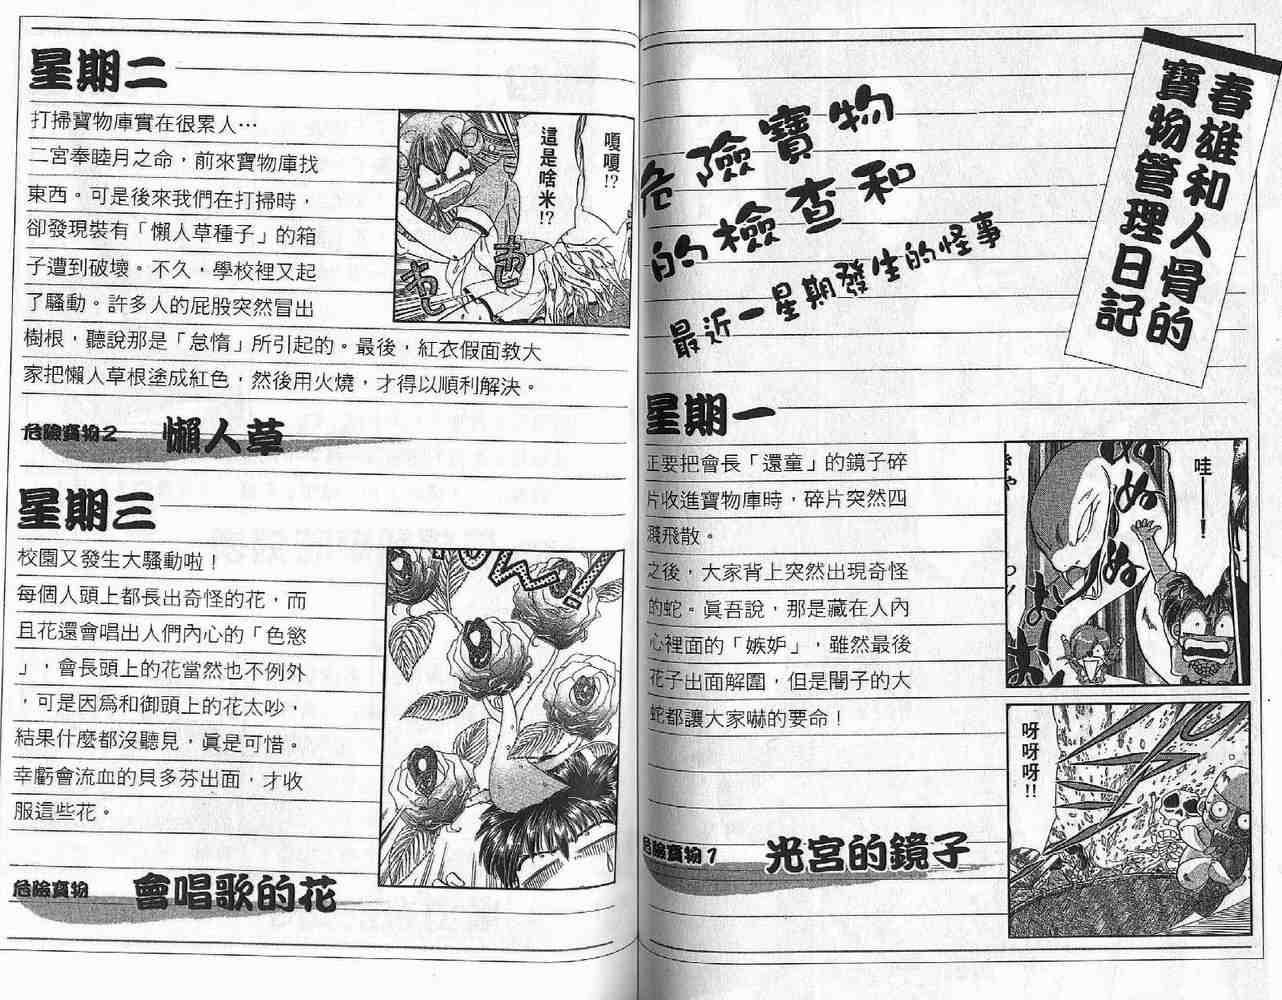 春雄和人骨的
寶物管理日記
危險寶物
的檢查和
最近一星期發生的怪事
星期一
正要把會長「還童」的鏡子碎
片收進寶物庫時，碎片突然四
濺飛散。
之後，大家背上突然出現奇怪
的蛇。眞吾說，那是藏在人內
心裡面的「嫉妒」，雖然最後
花子出面解圍，但是闇子的大
蛇都讓大家嚇的要命！
哇——！
ぬぬ
きゃ
呀呀呀!!
危險寶物 1
光宮的鏡子
星期二
打掃寶物庫實在很累人…
二宮奉睦月之命，前來寶物庫找
東西。可是後來我們在打掃時，
卻發現裝有「懶人草種子」的箱
子遭到破壞。不久，學校裡又起
了騷動。許多人的屁股突然冒出
樹根，聽說那是「怠惰」所引起的。最後，紅衣假面教大
家把懶人草根塗成紅色，然後用火燒，才得以順利解決。
嗄嗄!?
這是啥米!?
危險寶物 2
懶人草
星期三
校園又發生大騷動啦！
每個人頭上都長出奇怪的花，而
且花還會唱出人們內心的「色慾
」，會長頭上的花當然也不例外
，可是因爲和御頭上的花太吵，
結果什麼都沒聽見，眞是可惜。
幸虧會流血的貝多芬出面，才收
服這些花。
危險寶物
會唱歌的花